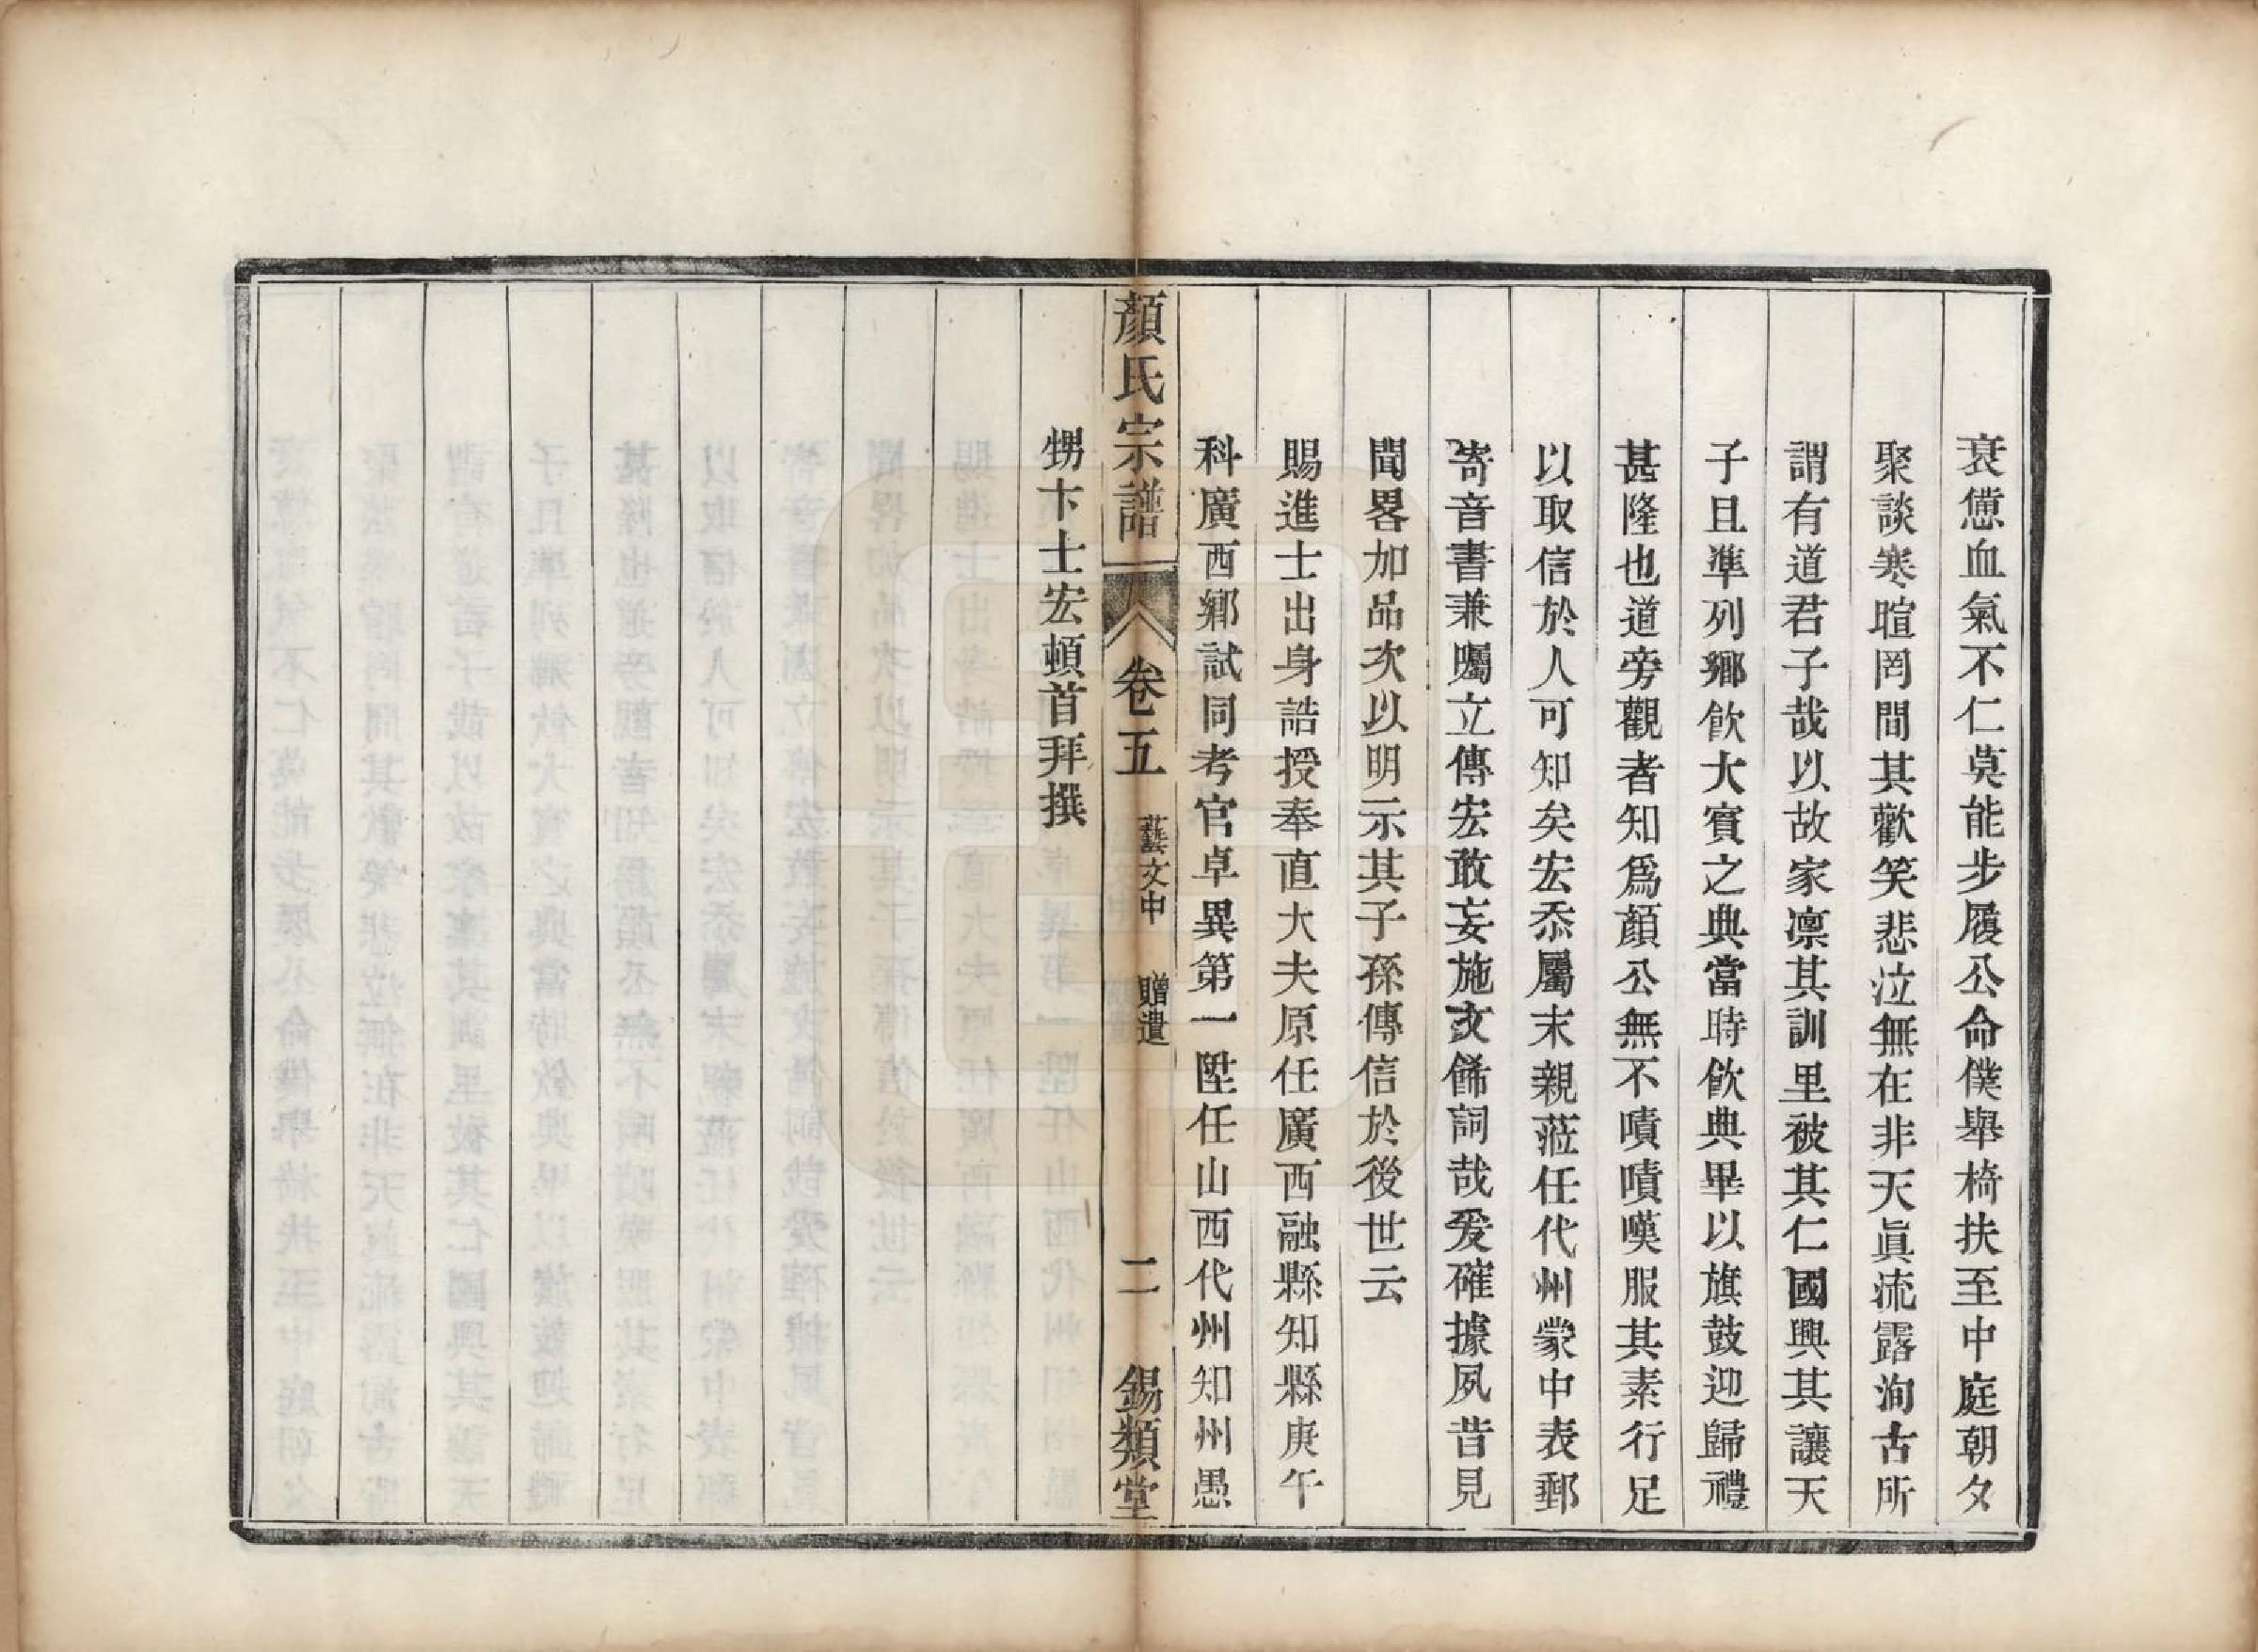 衰憊血氣不仁莫能步履公命僕舉椅扶至中庭朝夕
聚談寒暄罔間其歡笑悲泣無在非天眞流露洵古所
謂有道君子哉以故家凛其訓里被其仁國興其讓天
子且準列鄉飮大賓之典當時飮典畢以旗鼓迎歸禮
甚隆也道旁觀者知爲顏公無不嘖嘖嘆服其素行足
以取信於人可知矣宏忝屬末親蒞任代州蒙中表郵
寄音書兼囑立傳宏敢妄施文餙詞哉爰確據夙昔見
聞畧加品次以明示其子孫傳信於後世云
賜進士出身誥授奉直大夫原任廣西融縣知縣庚午
科廣西鄉試同考官卓異第一陞任山西代州知州愚
顏氏宗譜 卷五 藝文中 贈遺 二 錫類堂
甥卞士宏頓首拜撰